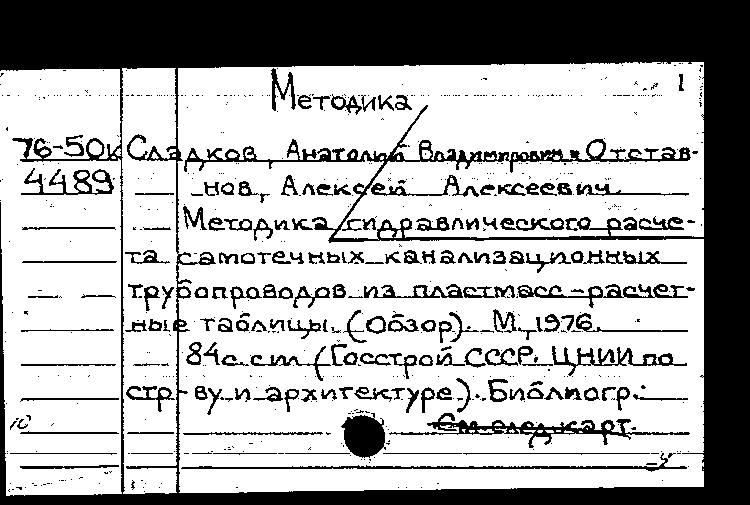 1
Методика
76-50к Сладков, Анатолий Владимирович и Отстав-
4489 нов, Алексей Алексеевич.
Методика гидравлического расче-
та самотечных канализационных
трубопроводов из пластмасс-расчет-
ные таблицы. (Обзор). М., 1976.
84с. сил (Госстрой СССР. ЦНИИ по
стр-ву и архитектуре). Библиогр.:
10 См след карт.